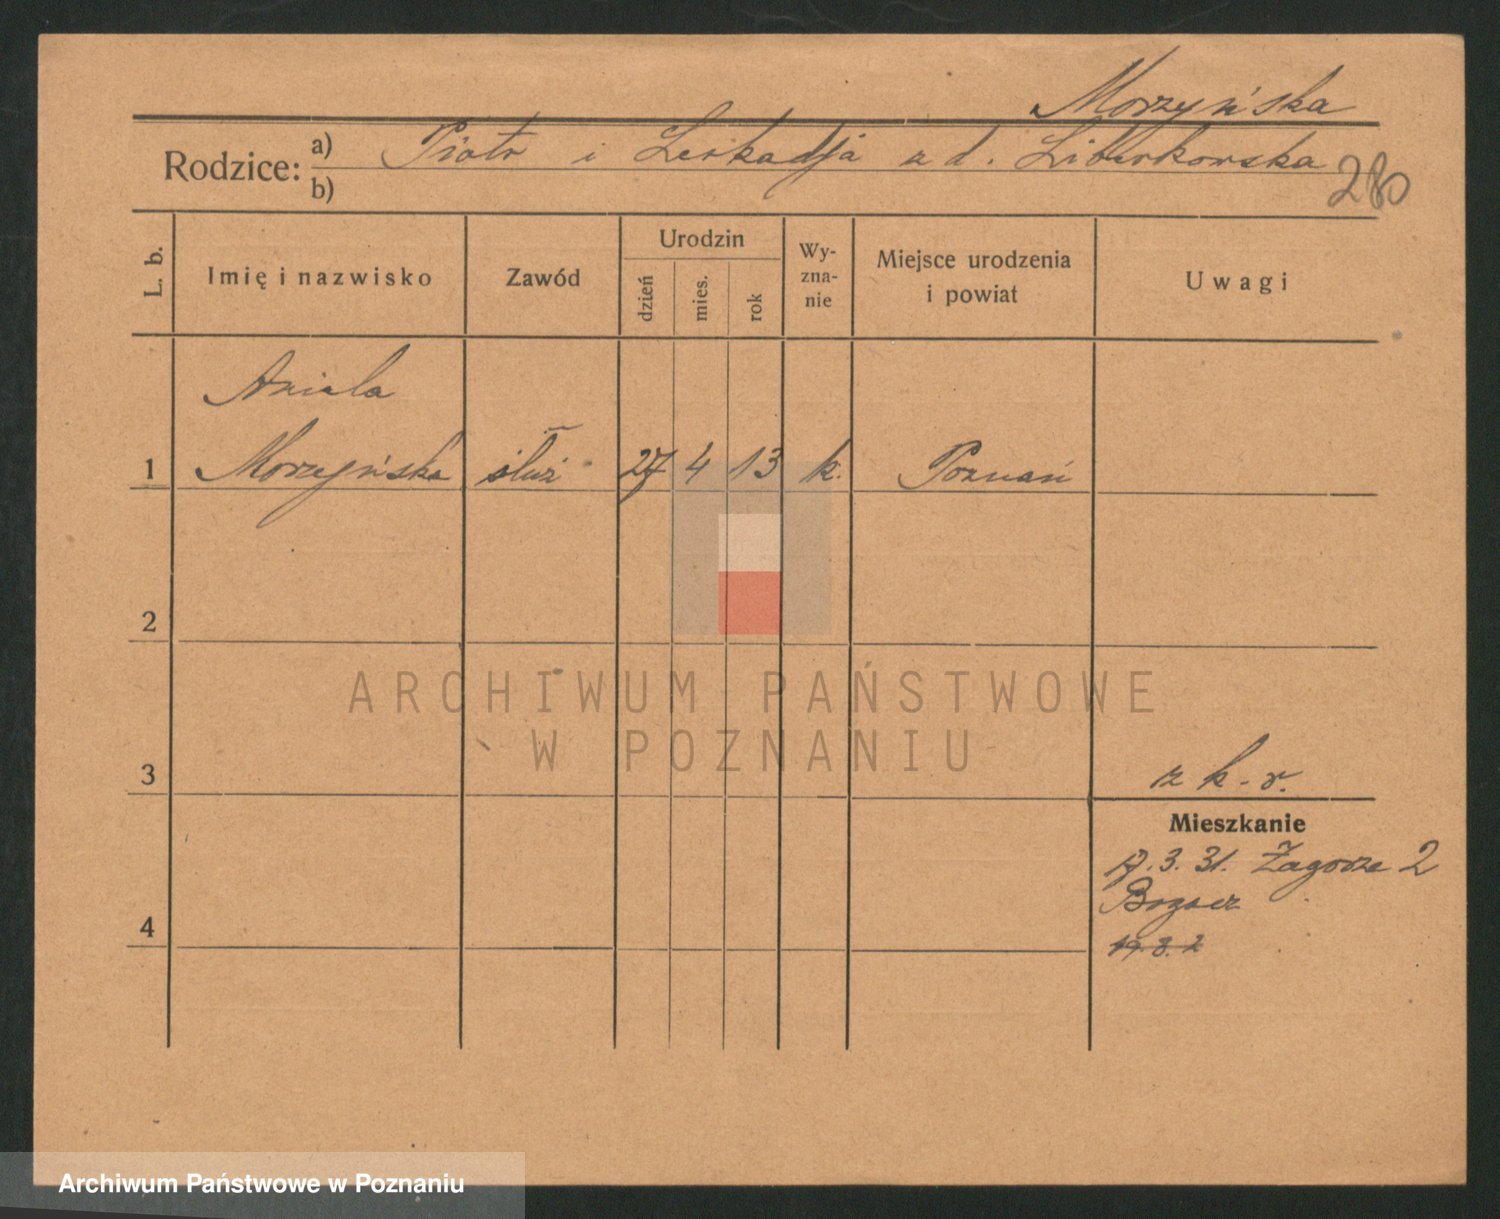 Morzyńska
Rodzice: a) Piotr i Leokadja z d. Liberkowska
b)
280
L. b.
Imię i nazwisko
Zawód
Urodzin
dzień
mies.
rok
Wy-
zna-
nie
Miejsce urodzenia
i powiat
Uwagi
Aniela
1 Morzyńska służ 27 4 13 k. Poznań
2
3
z k. r.
Mieszkanie
17. 3. 31. Zagorze 2
4
19. 3. 2
ARCHIWUM PAŃSTWOWE
W POZNANIU
Archiwum Państwowe w Poznaniu